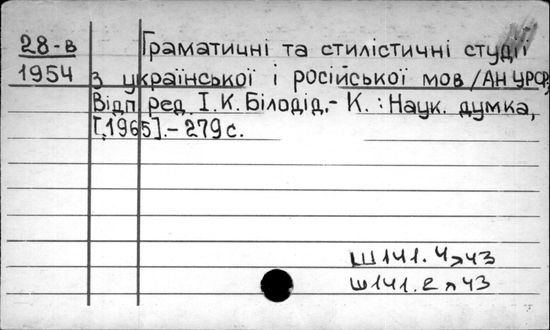 28-в Граматичні та стилістичні студії
1954 з української і російської мов/АН УРСР,
Відп ред І.К. Білодід.- К. : Наук. думка,
[,1965].- 279 с.
Ш141.4я43
Ш141.2я43